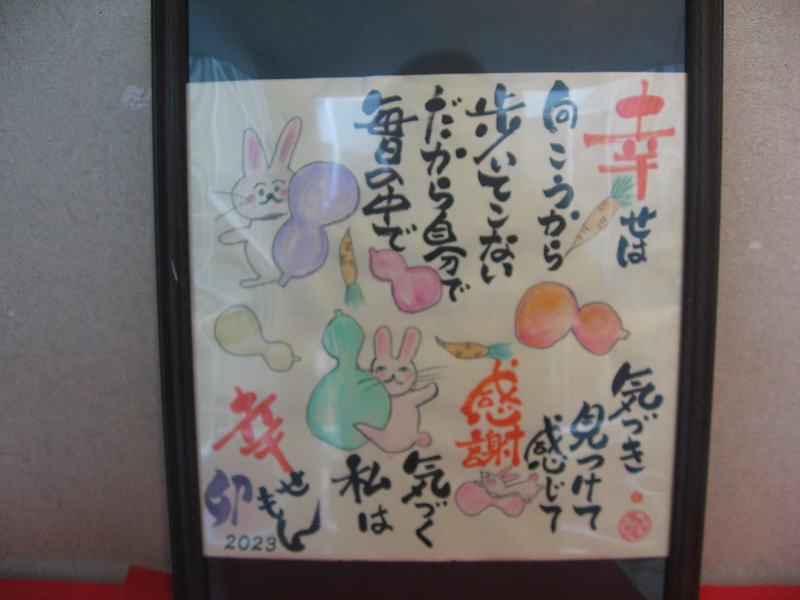 幸せは
向こうから
歩いてこない
だから自分で
毎日の中で
気づき
見つけて
感じて
感謝
気づく
私は
幸せ
卯
2023